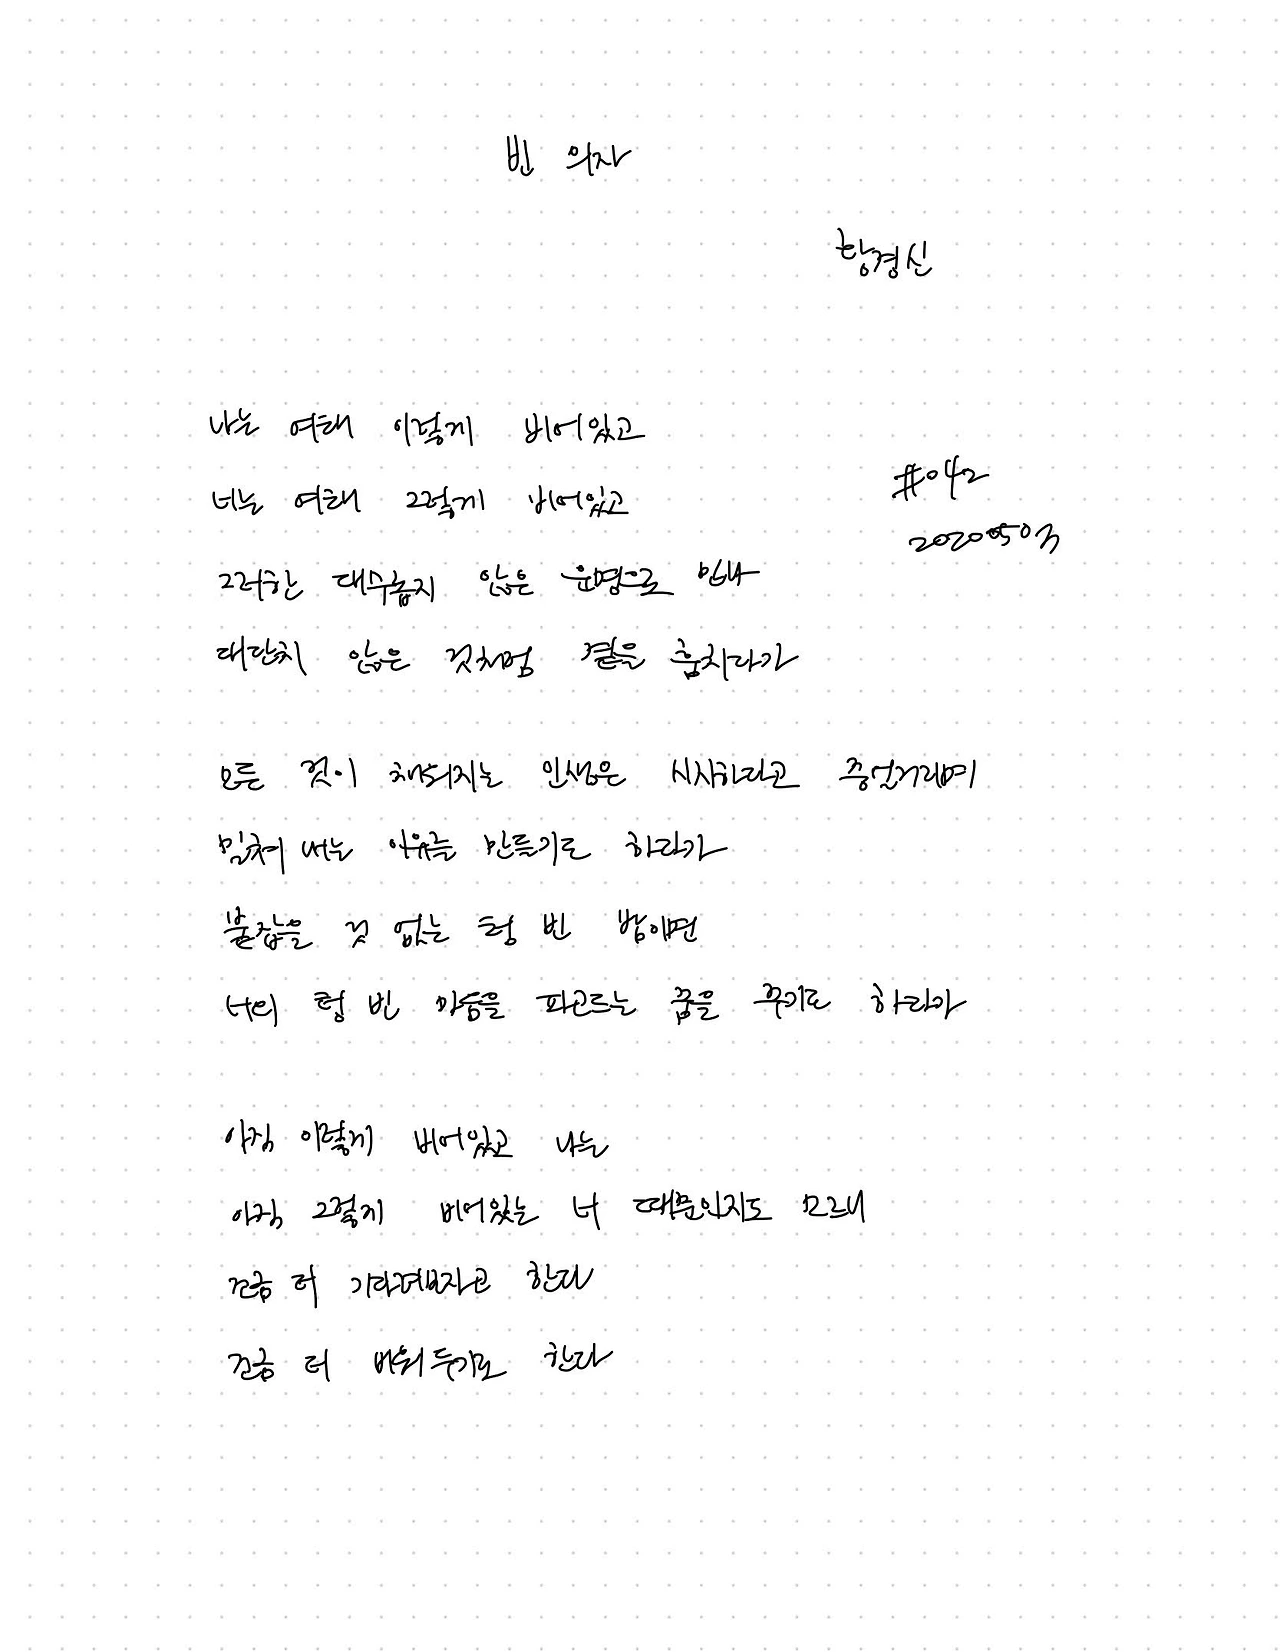 빈 의자
황경신
나는 여태 이렇게 비어있고
너는 여태 그렇게 비어있고
#042
20200503
그러한 대수롭지 않은 운명으로 만나
대단치 않은 것처럼 곁을 훔치다가
모든 것이 채워지는 인생은 시시하다고 중얼거리며
밀쳐 내는 이유를 만들기도 하다가
붙잡을 것 없는 텅 빈 밤이면
너의 텅 빈 마음을 파고드는 꿈을 꾸기도 하다가
아직 이렇게 비어있고 나는
아직 그렇게 비어있는 너 때문인지도 모르니
조금 더 기다려보자고 한다
조금 더 비워두기로 한다